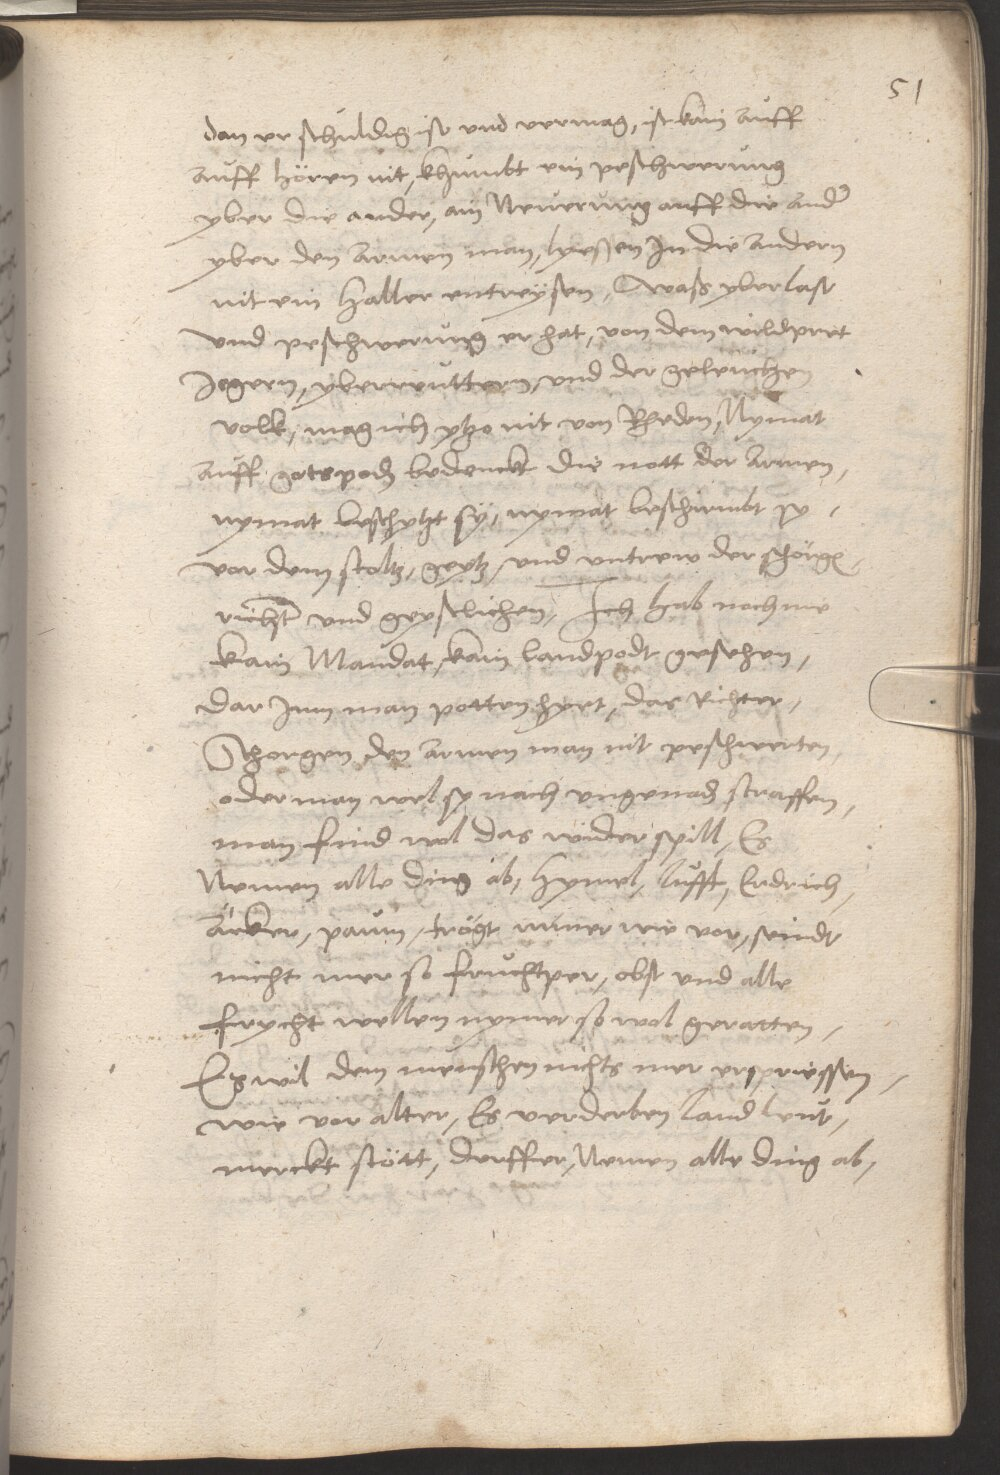 51
dan er schuldig ist und vermag, ist kain auff
auff hören nit, khumbt ein peschwerung
yber die ander, ain Neuerung auff die and
yber den armen man, lyessen In die andern
nit ein haller entreysen, Waß yberlast
und peschwerung er hat, von dem wildpret
Jegern, yberreuttern, und der geleichen
volk, mag ich ytzo nit von Reden, Nymat
auff gotspod bedenckt die nott der armen,
nymat beschytzt sy, nymat beschirmbt sy,
vor dem stoltz, geytz, und untrew der schörg,
richter und geystlichen, Ich hab noch nie
kain Mandat, kain landpodt gesehen,
dar Inn man potten hyet, das Richter,
Schorgen den armen man nit peschwerten,
oder man wel sy nach ungenad straffen,
man find wol das widerspill, Es
Nemen alle ding ab, hymel, lufft, Erdrich,
äcker, paum, trögt nimer wie vor, seindt
nicht mer so fruchtper, obst und alle
frycht wellen nymer so wol geratten,
Es wil dem menschen nichts mer erspriessen,
wie vor alter, Es verderben land leut,
merckt stött, derffer, Nemen alle ding ab,